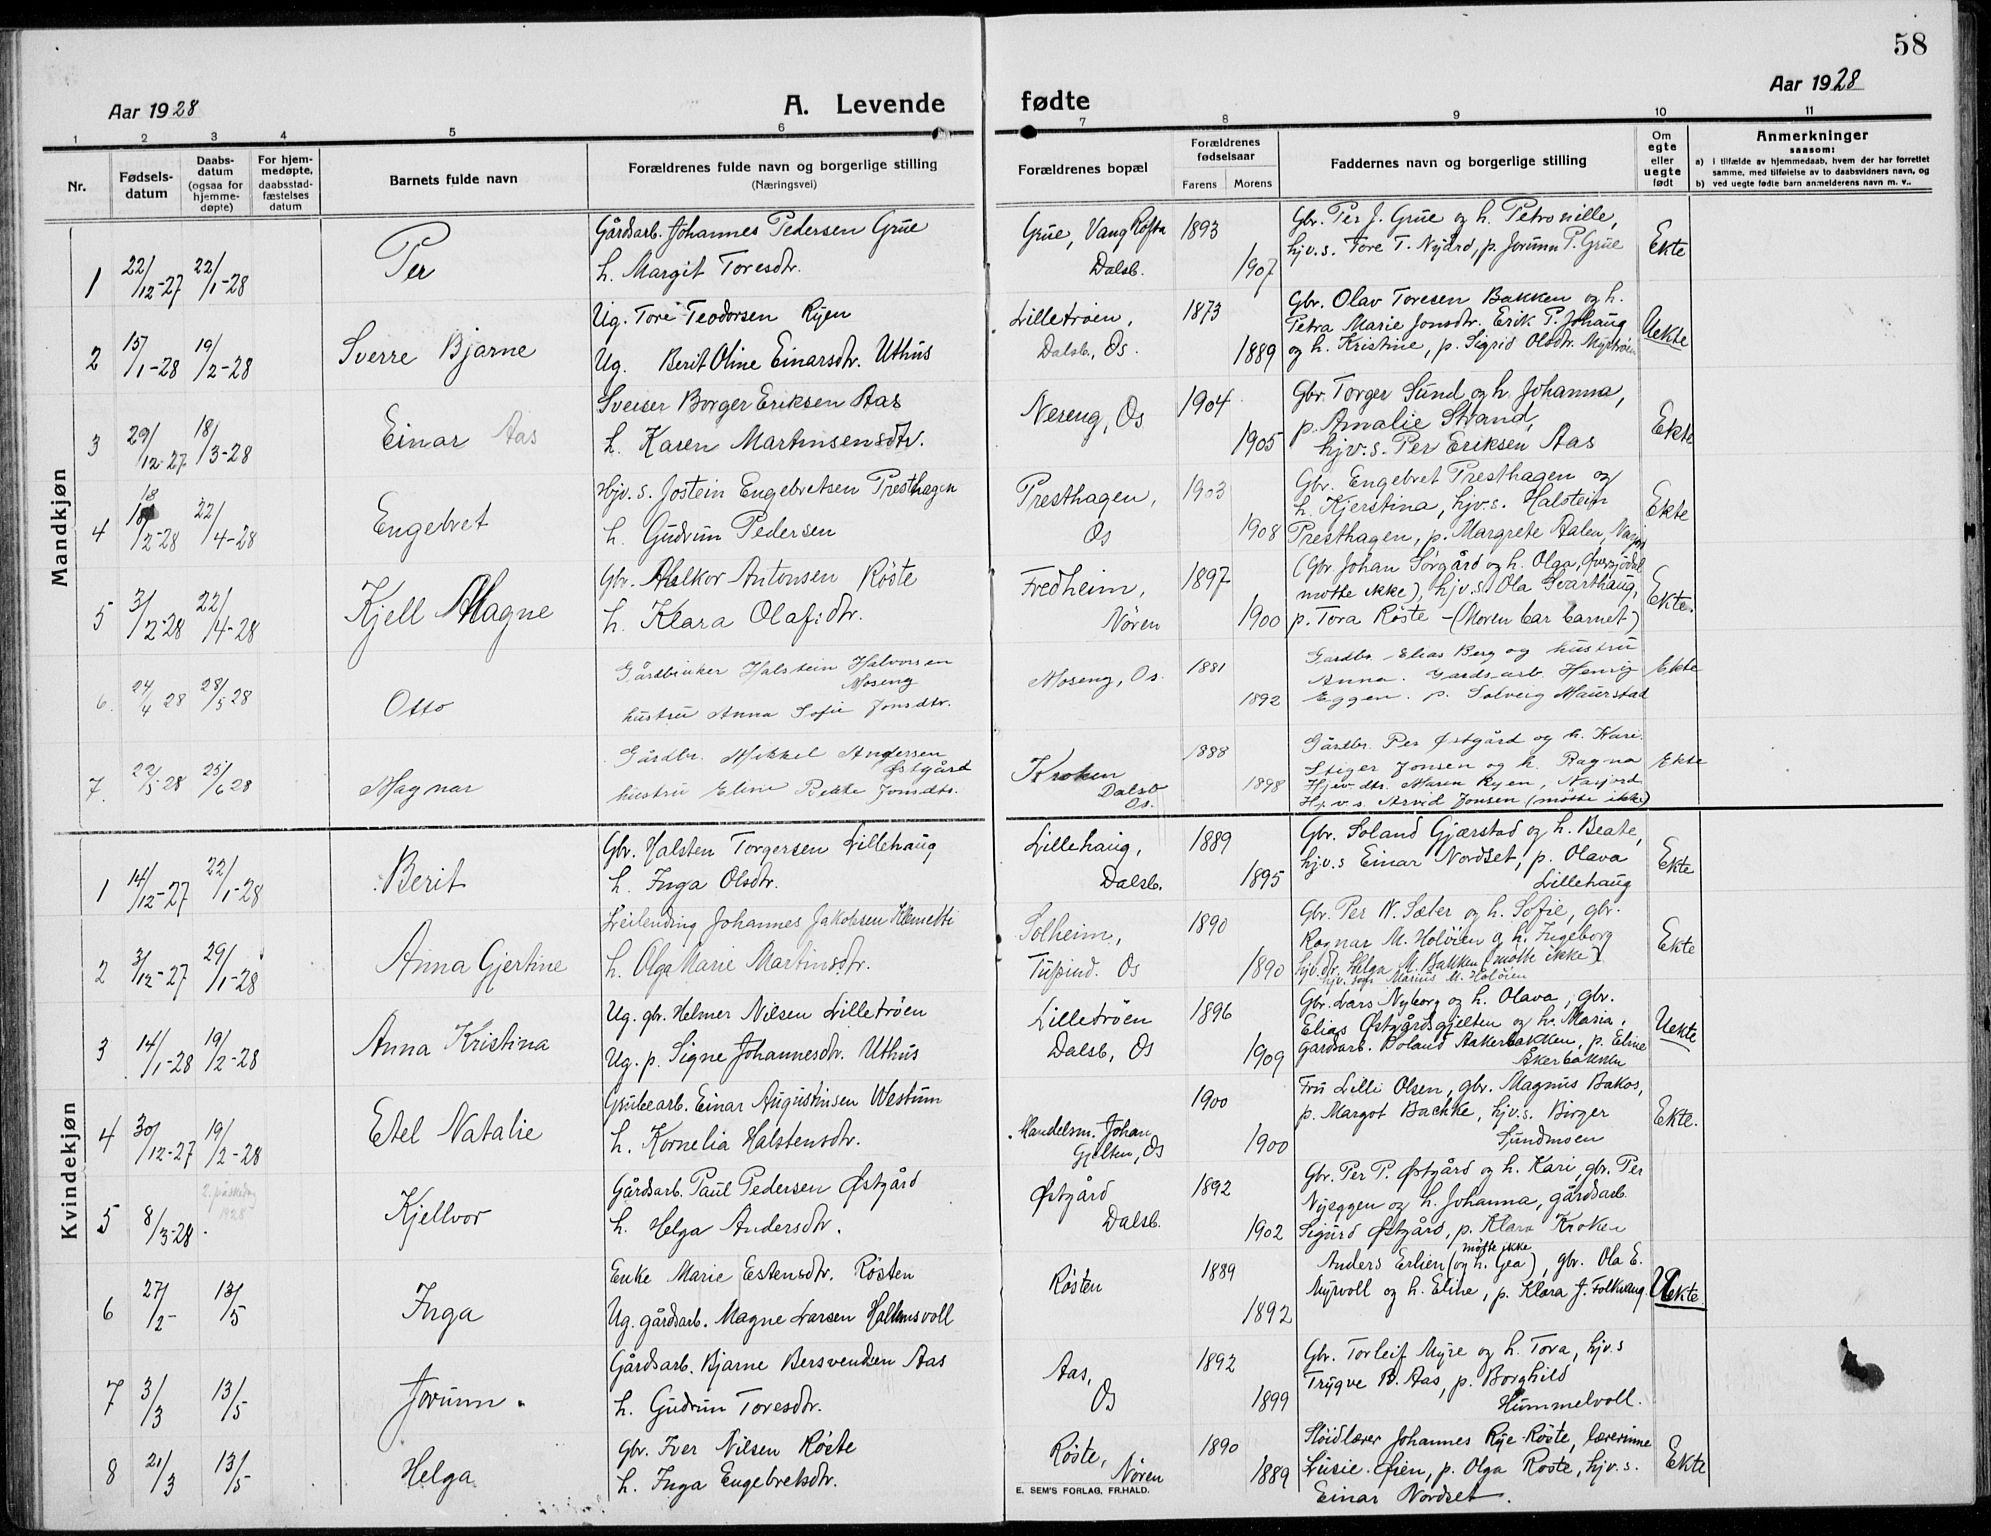 58
Aar 1928
A. Levende fødte
Aar 1928
1 2 3 4 5 6 7 8 9 10 11
Nr.
Fødsels-
datum
Daabs-
datum
(ogsaa for
hjemme-
døpte)
For hjem-
medøpte,
daabsstad-
fæstelses
datum
Barnets fulde navn
Forældrenes fulde navn og borgerlige stilling
(Næringsvei)
Forældrenes bopæl
Forældrenes
fødselsaar
Farens Morens
Faddernes navn og borgerlige stilling
Om
egte
eller
uegte
født
Anmerkninger
saasom:
a) i tilfælde av hjemmedaab, hvem der har forrettet
samme, med tilføielse av to daabsvidners navn, og
b) ved uegte fødte barn anmelderens navn m. v..
Mandkjøn
1 22/12-27 22/1-28 Per
Gårdsarb. Johannes Pedersen Grue
h. Margit Toresdtr.
Grue, Vang
Dalsb.
1893
1907
Gbr. Per J. Grue og h. Petronille,
hjv.s. Tore T. Nyård, p. Jorunn P. Grue
Ekte
2 15/1-28 19/2-28 Sverre Bjarne
Ug. Tore Teodorsen Ryen
Ug. Berit Oline Einarsdtr. Uthus
Lilletrøen,
Dalsb., Os.
1873
1889
Gbr. Olav Toresen Bakken og h.
Petra Marie Jonsdtr. Erik P. Johaug
og h. Kristine, p. Sigrid Olsdtr. Myrtrøen
Uekte
3 29/12-27 18/3-28 Einar Aas
Sveiser Borger Eriksen Aas
h. Karen Martinsensdtr.
Neseng, Os
1904
1905
Gbr. Torger Sund og h. Johanna,
p. Amalie Strand,
hjv.s. Per Eriksen Aas
Ekte
4 18/2-28 22/4-28 Engebret
Hjv. s. Jostein Engebretsen Presthagen
h. Gudrun Pedersen
Presthagen,
Os
1903
1908
Gbr. Engebret Presthagen og
h. Kjerstina, hjv.s. Halstein
Presthagen, p. Margrete Aalen,
Ekte
5 3/2-28 22/4-28 Kjell Magne
Gbr. Halkor Antonsen Røste
h. Klara Olafsdtr.
Fredheim,
Nören
1897
1900
(Gbr. Johan Sörgård og h. Olga,
møtte ikke), hjv.s. Ola Svarthaug,
p. Tora Røste - (Moren bar barnet)
Ekte.
6. 24/4 28 28/5 28 Otto
Gårdbruker Halstein Halvorsen
Moseng
hustru Anna Sofie Jonsdtr.
Moseng, Os.
1881
1892
Gardbr. Elias Berg og hustru
Anna. Gardsarb. Henrig
Eggen. p. Solveig Maurstad
Ekte
7. 22/5 28 25/6 28 Magnar
Gårdbr. Mikkel Andersen
Østgård
hustru Eline Bekke Jonsdtr.
Kroken
Dalsb
Os.
1888
1898
Gårdbr. Per Østgård og h. Kari.
Stiger Jonsen og h. Ragna
Hjev dtr. Maren Ryen, Narjord
Hj.v.s. Arvid Jonsen (møtte ikke)
Ekte
Kvindekjøn
1 14/12-27 22/1-28 Berit
Gbr. Halsten Torgersen Lillehaug
h. Inga Olsdtr.
Lillehaug,
Dalsb.
1889
1895
Gbr. Soland Gjærstad og h. Beate,
hjv.s Einar Nordset, p. Olava
Lillehaug
Ekte
2 3/12-27 29/1-28 Anna Gjertine
Leilending Johannes Jakobsen Klemetti
h. Olga Marie Martinsdtr.
Solheim,
Tufsind. Os
1890
1890
Gbr. Per N. Sæter og h. Sofie, gbr.
Ragnar M. Holøien o h. Ingeborg
hjv.dr. Helga M. Bakken (møtte ikke)
hjv. søn Marius M. Holøien
Ekte
3 14/1-28 19/2-28 Anna Kristina
Ug. gbr. Helmer Nilsen Lilletrøen
Ug. p. Signe Johannesdtr. Uthus
Lilletrøen
Dalsb, Os
1896
1909
Gbr. Lars Nyborg og h. Olava, gbr.
Elias Østgårdsgjelten og h. Maria,
gardsarb. Boland Aakerbakken, p. Eline
Akerbakken
Uekte
4 30/12-27 19/2-28 Etel Natalie
Grubearb. Einar Augustinsen Westum
h. Kornelia Halstensdtr.
Handelsm. Johan
Gjelten, Os
1900
1900
Fru Lilli Olsen, gbr. Magnus Bakos,
p. Margot Bachke, hjv.s. Birger
Sundmoen
Ekte.
5 8/3-28. 2. påskedag
1928
Kjellvor
Gårdsarb. Paul Pedersen Østgård
h. Helga Andersdtr.
Østgård
Dalsb.
1892
1902
Gbr. Per P. Østgård og h. Kari, gbr. Per
Nyeggen og h. Johanna, gårdsarb.
Sigurd Østgård, p. Klara Kroken
6 27/2- 13/5 Inga
Enke Marie Estensdtr. Røsten
Ug. gårdsarb. Magne Larsen Hallensvoll
Røsten
1889
1892
møtte ikke
Anders Erlien (og h. Gea), gbr. Ola E.
Myrvoll og h. Eline, p. Klara J. Folkvang.
Uekte
7 3/3 13/5 Jorunn.
Gårdsarb. Bjarne Bersvendsen Aas
h. Gudrun Toresdtr.
Aas,
Os
1892
1899
Gbr. Torleif Myre og h. Tora, hjv.s
Trygve B. Aas, p. Borghild
Hummelvoll.
8 21/3 13/5 Helga
Gbr. Iver Nilsen Røste
h. Inga Engebretsdtr.
Røste,
Nören
1890
1889
Sløidlærer Johannes Rye-Røste, lærerinne
Lusie Øien, p. Olga Røste, hjv.s.
Einar Nordset.
Ekte
E. SEM'S FORLAG, FR.HALD.